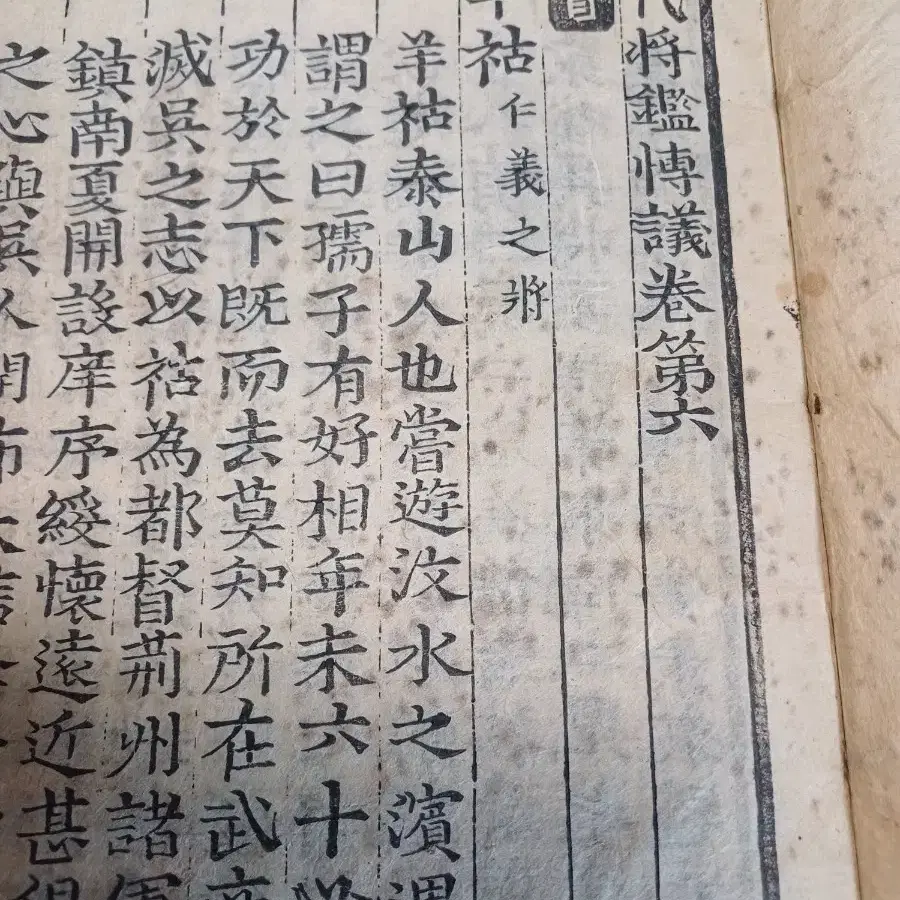 代将鑑愽議卷第六
羊祜 仁義之將
羊祜泰山人也嘗遊汶水之濱遇
謂之曰孺子有好相年未六十必
功於天下既而去莫知所在武帝
滅吳之志以祜為都督荊州諸軍
鎮南夏開設庠序綏懷遠近甚得
之心與吳人開布大信